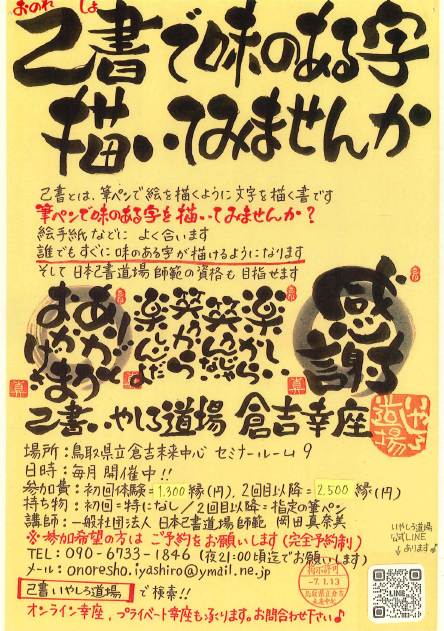 おのれ しょ
己書で味のある字
描いてみませんか
己書とは、筆ペンで絵を描くように文字を描く書です
筆ペンで味のある字を描いてみませんか？
絵手紙などに よく合います
誰でもすぐに味のある字が描けるようになります
そして日本己書道場師範の資格も目指せます
ありがとう
おかげさま
感謝
己書いやしろ道場 倉吉幸座
いやしろ
道場
場所：鳥取県立倉吉未来中心 セミナールーム9
日時：毎月開催中!!
参加費：初回体験=1,300縁(円)、2回目以降=2,500縁(円)
持ち物：初回=特になし／2回目以降=指定の筆ペン
講師：一般社団法人 日本己書道場師範 岡田真奈美
※参加希望の方は ご予約をお願いします(完全予約制)
TEL：090-6733-1846 (夜21:00頃迄でお願いします)
メール：onoresho.iyashiro@ymail.ne.jp
己書いやしろ道場 で検索!!
オンライン幸座、プライベート幸座も承ります。お問合わせ下さい♪
いやしろ道場
公式LINE
↓あります♪
LINE
掲示許可
-7.1.13
鳥取県立倉吉
未来中心